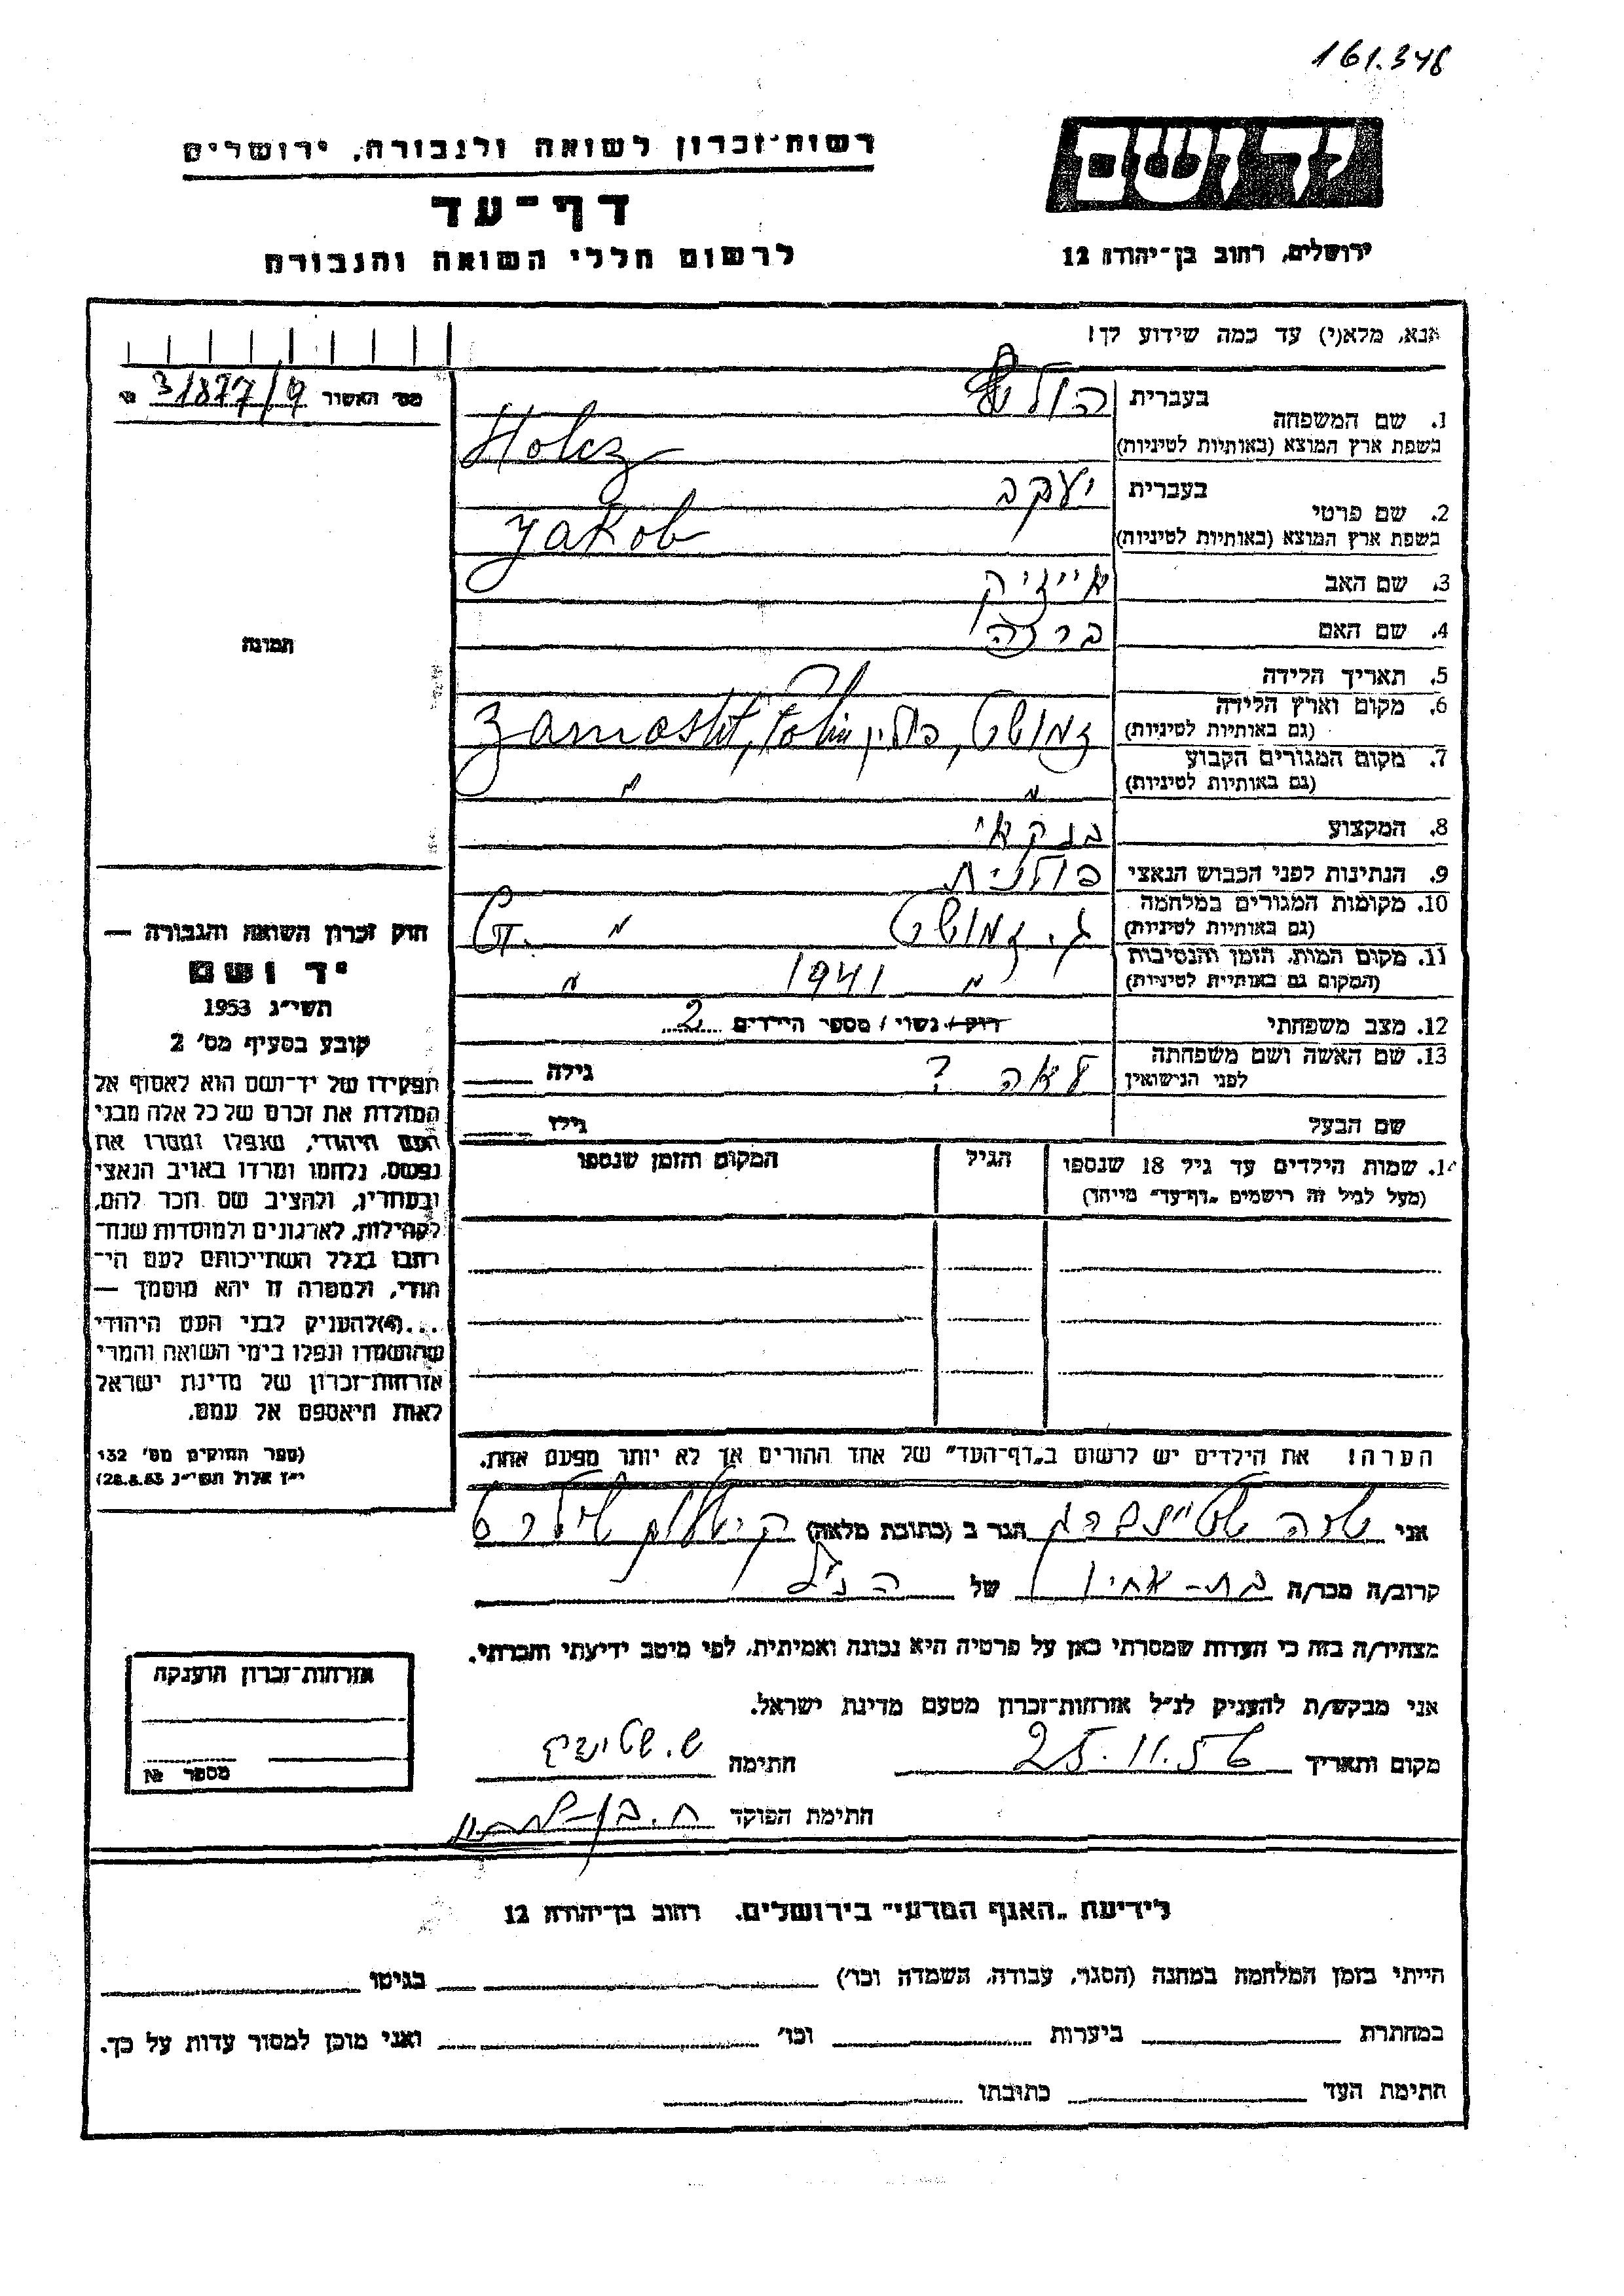 161.348
רשות־זכרון לשואה ולגבורה, ירושלים
יד ושם
דף־עד
לרשום חללי השואה והגבורה
ירושלים, רחוב בן־יהודה 12
אנא, מלא(י) עד כמה שידוע לך!
מס׳ האשור 31877/9 №
1. שם המשפחה
בעברית הולץ
בשפת ארץ המוצא (באותיות לטיניות) Holcz
2. שם פרטי
בעברית יעקב
בשפת ארץ המוצא (באותיות לטיניות) Jakob
3. שם האב אייזיק
4. שם האם
תמונה
5. תאריך הלידה
6. מקום וארץ הלידה
(גם באותיות לטיניות) זמושט, פולין Zamosht, Polin
7. מקום המגורים הקבוע
(גם באותיות לטיניות) " "
8. המקצוע בנקאי
9. הנתינות לפני הכבוש הנאצי פולנית
10. מקומות המגורים במלחמה
(גם באותיות לטיניות) ג. זמושט "
11. מקום המות, הזמן והנסיבות
(המקום גם באותיות לטיניות) " 1941 "
12. מצב משפחתי רוק/ נשוי / מספר הילדים 2
13. שם האשה ושם משפחתה
לפני הנישואין לאה ? גילה
שם הבעל גילו
14. שמות הילדים עד גיל 18 שנספו הגיל המקום והזמן שנספו
(מעל לגיל זה רושמים „דף־עד” מיוחד)
חוק זכרון השואה והגבורה —
יד ושם
תשי״ג 1953
קובע בסעיף מס׳ 2
תפקידו של יד־ושם הוא לאסוף אל
המולדת את זכרם של כל אלה מבני
העם היהודי, שנפלו ומסרו את
נפשם, נלחמו ומרדו באויב הנאצי
ובעוזריו, ולהציב שם וזכר להם,
לקהילות, לארגונים ולמוסדות שנח־
רבו בגלל השתייכותם לעם הי־
הודי, ולמטרה זו יהא מוסמך —
...(4)להעניק לבני העם היהודי
שהושמדו ונפלו בימי השואה והמרי
אזרחות־זכרון של מדינת ישראל
לאות היאספם אל עמם.
(ספר החוקים מס׳ 132
י״ז אלול תשי״ג 28.8.53)
הערה! את הילדים יש לרשום ב„דף־העד” של אחד ההורים אך לא יותר מפעם אחת.
אני שרה שטיינברג הגר ב (כתובת מלאה)
קרוב/ה מכר/ה בת-אחין של הנ״ל
מצהיר/ה בזה כי העדות שמסרתי כאן על פרטיה היא נכונה ואמיתית, לפי מיטב ידיעתי והכרתי.
אני מבקש/ת להעניק לנ״ל אזרחות־זכרון מטעם מדינת ישראל.
מקום ותאריך 25.11.56 חתימה
חתימת הפוקד
אזרחות־זכרון הוענקה
מספר №
לידיעת „האגף המדעי” בירושלים, רחוב בן־יהודה 12
הייתי בזמן המלחמה במחנה (הסגר, עבודה, השמדה וכו׳) בגיטו
במחתרת ביערות וכו׳ ואני מוכן למסור עדות על כך.
חתימת העד כתובתו